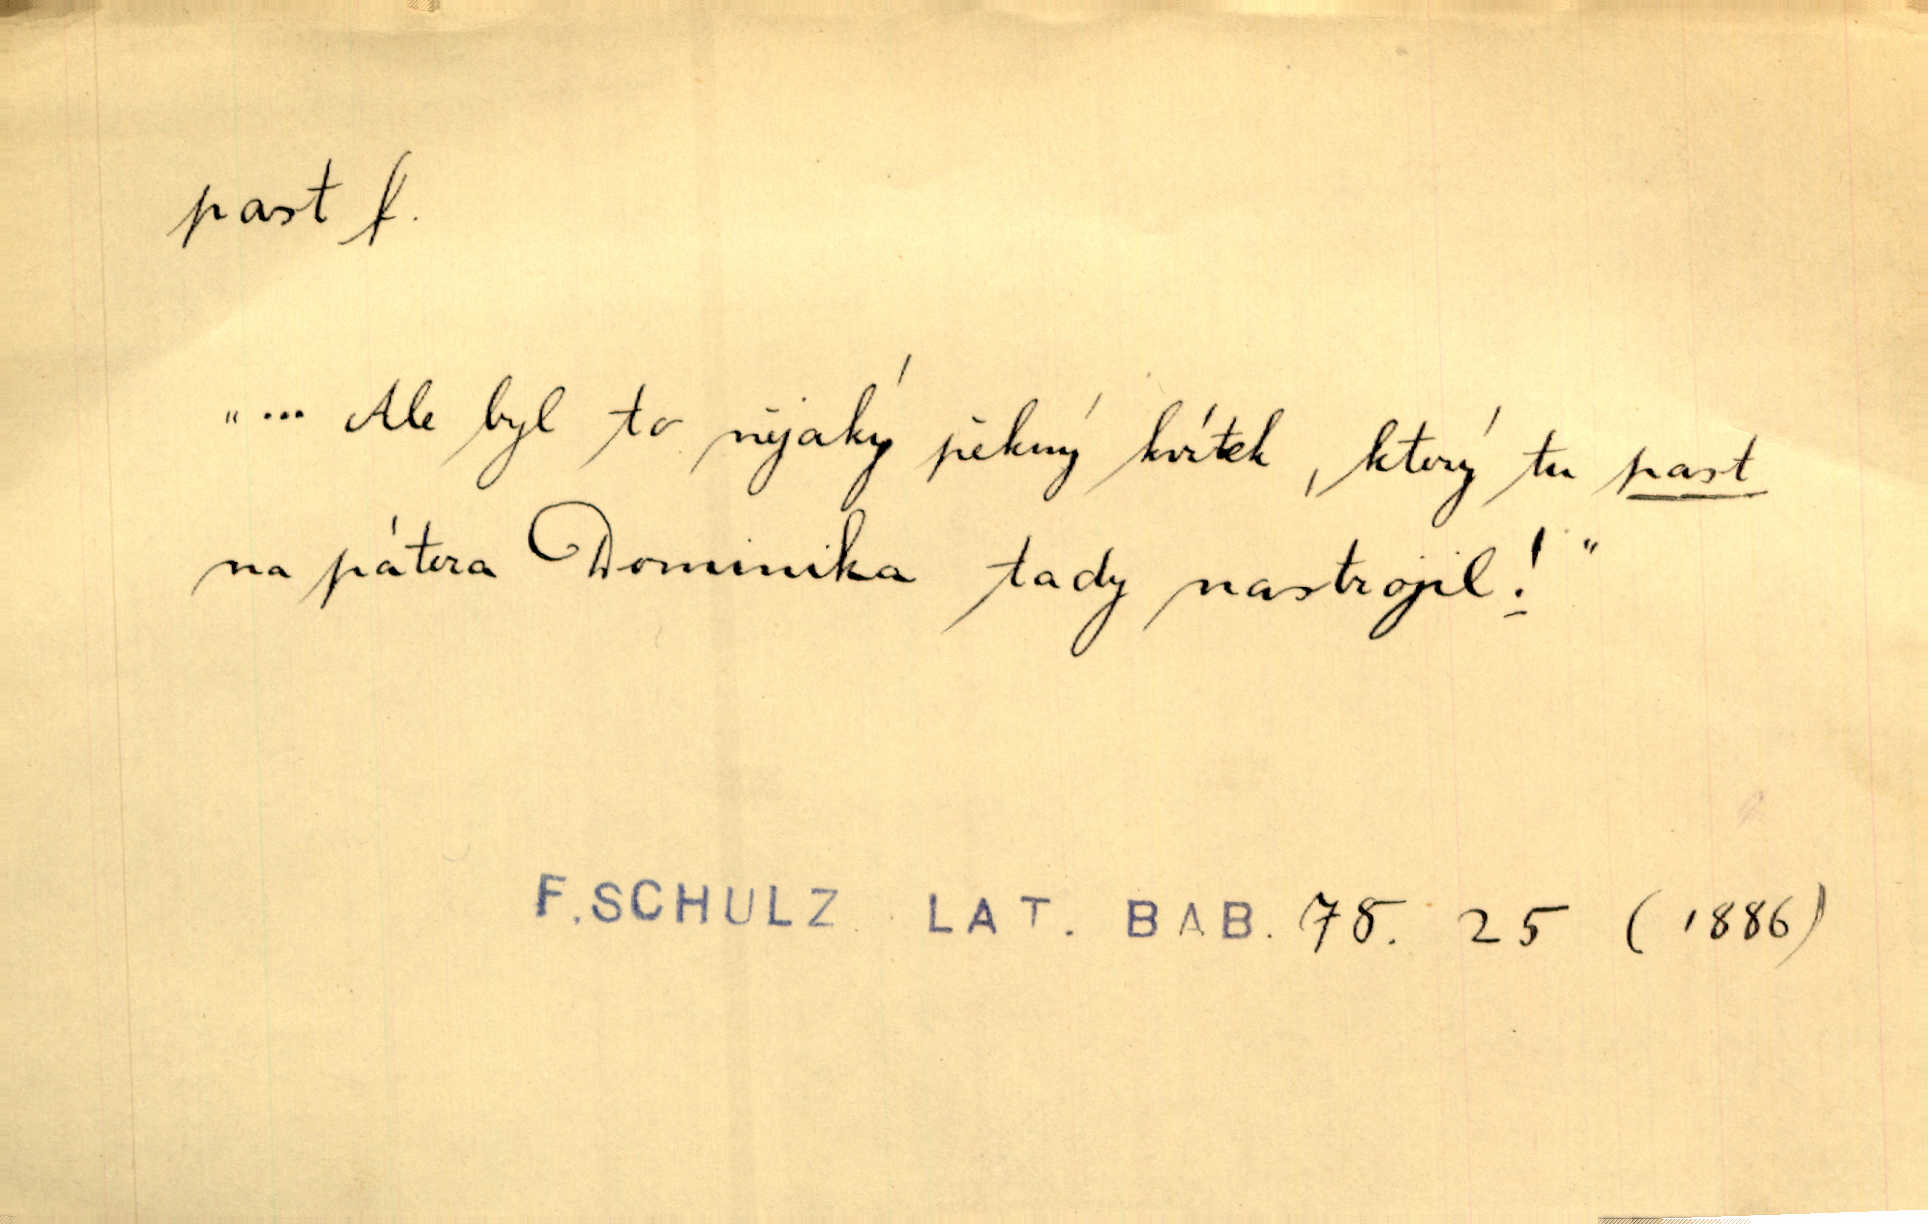 past f.
„... Ale byl to nějaký pěkný kvítek, který tu past
na pátera Dominika tady nastrojil!“
F. SCHULZ LAT. BAB. 78. 25 (1886)